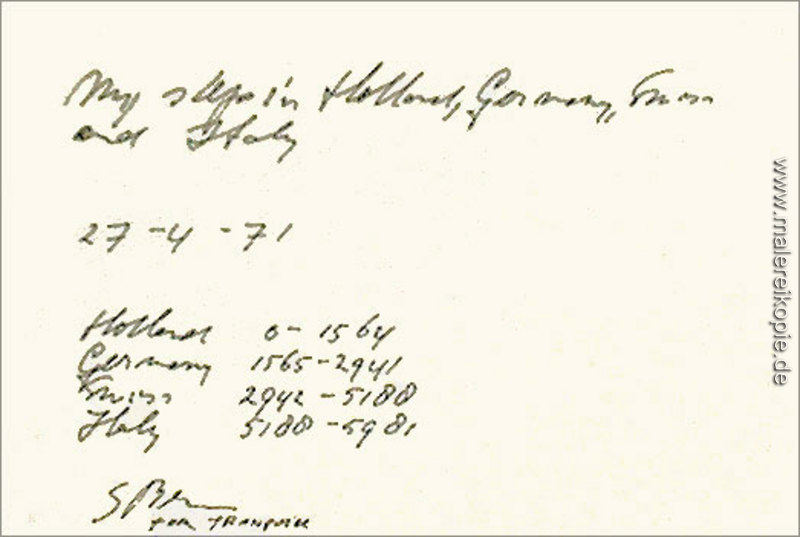 My steps in Holland, Germany, Swiss
and Italy
27-4-71
Holland 0-1564
Germany 1565-2941
Swiss 2942-5188
Italy 5188-5981
www.malereikopie.de